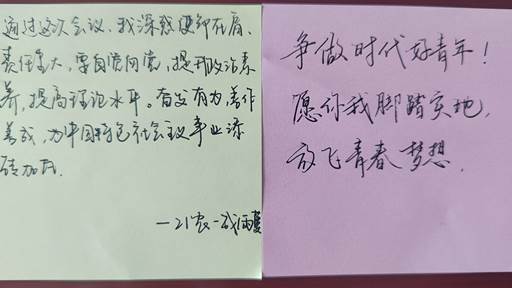 通过这次会议，我深感使命在肩、
责任重大，要自觉向党，提升政治素
养，提高理论水平。奋发有为，善作
善成，为中国特色社会主义事业添
砖加瓦.
争做时代好青年！
愿你我脚踏实地，
放飞青春梦想.